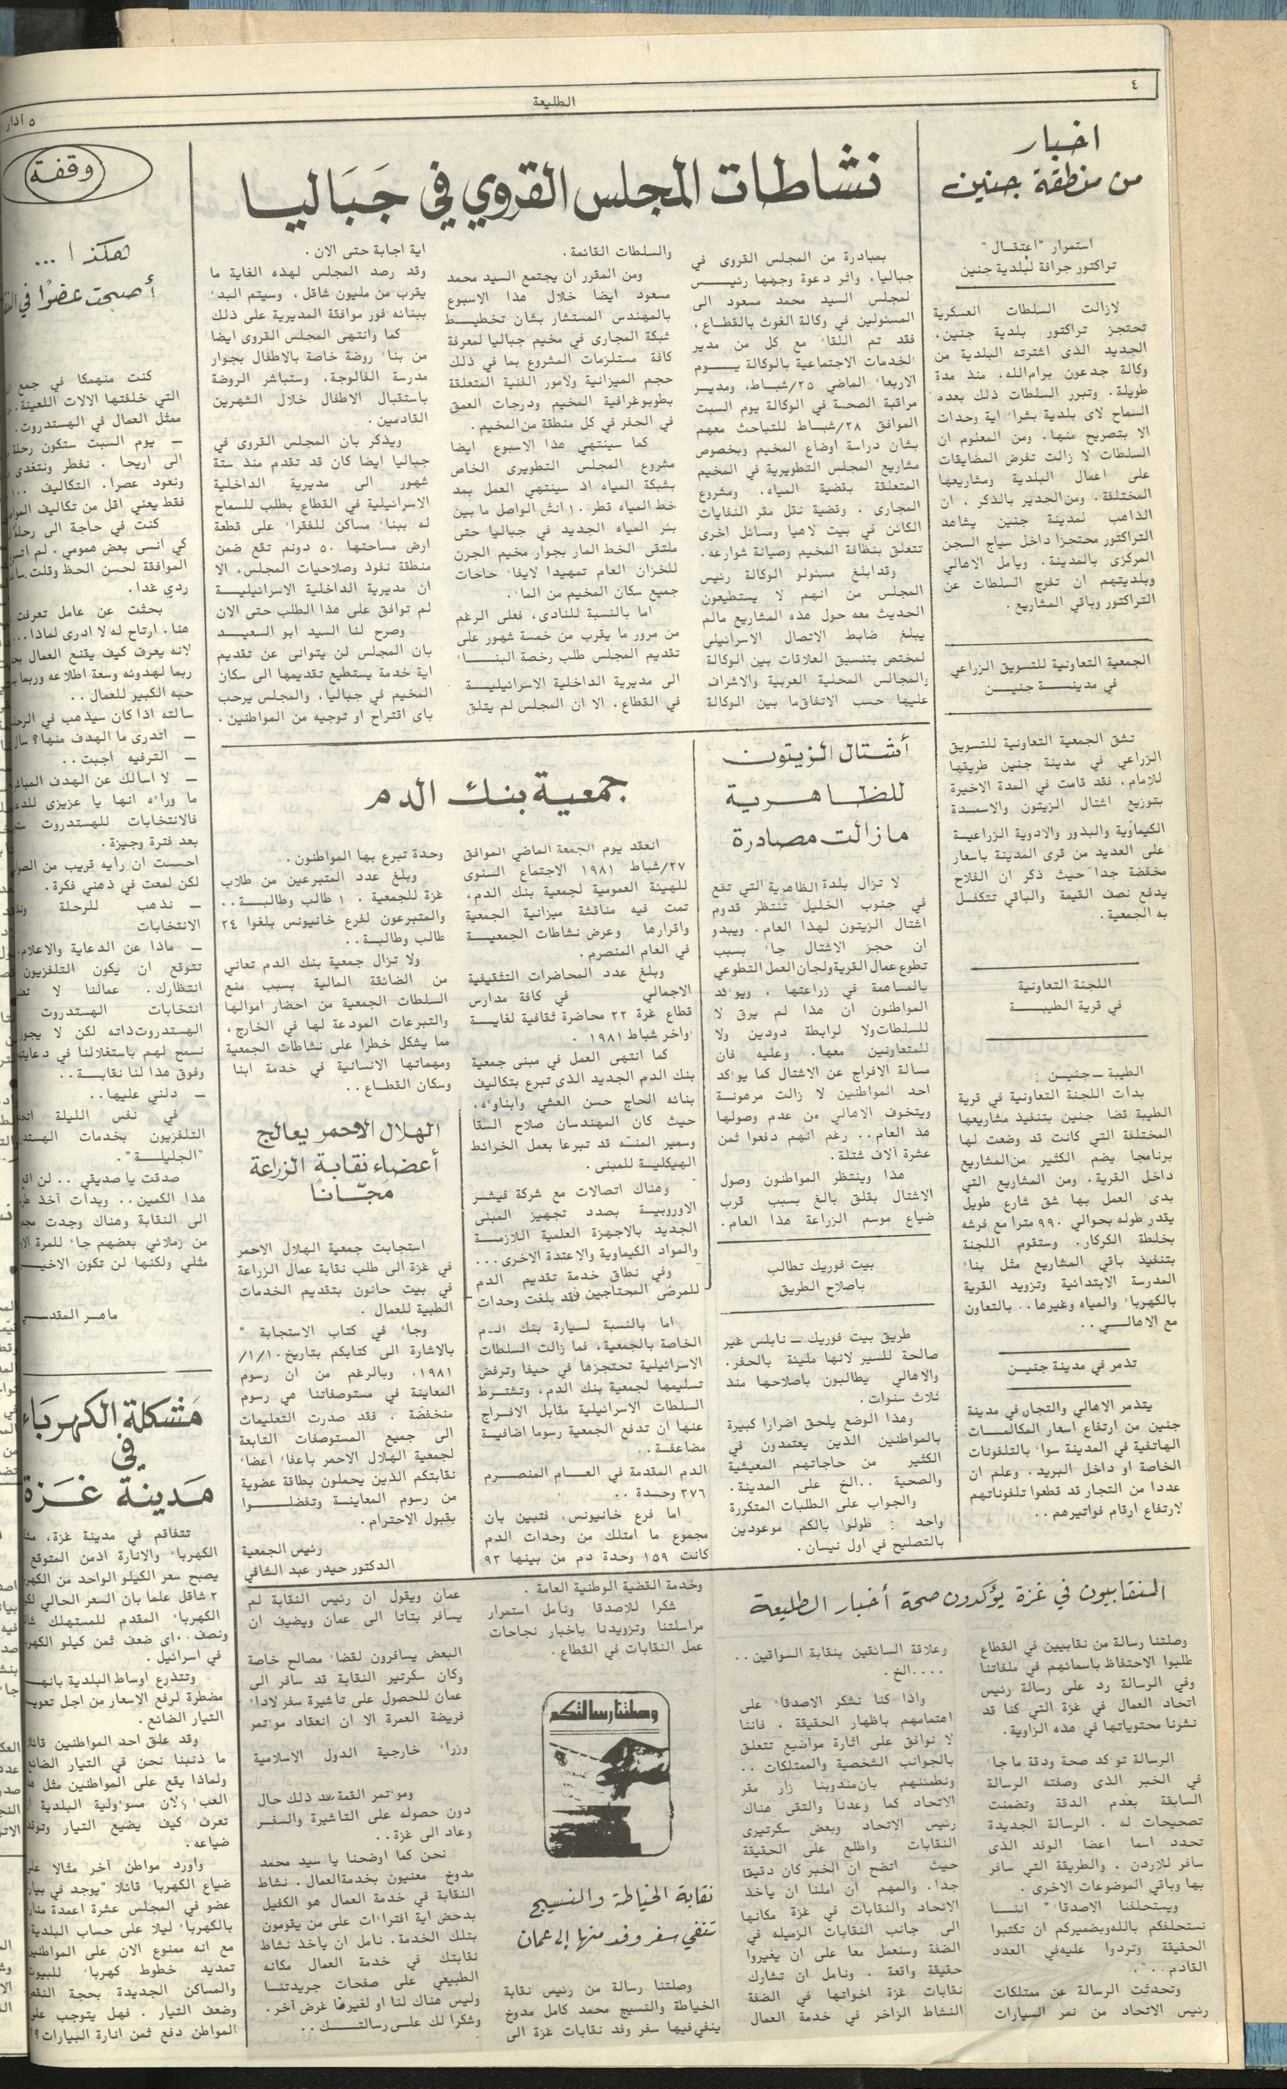 ٤
الطليعة
٥ آذار
اخبار
من منطقة جنين
استمرار "اعتقال"
تراكتور جرافة لبلدية جنين
لازالت السلطات العسكرية
تحتجز تراكتور بلدية جنين،
الجديد الذى اشترته البلدية من
وكالة جدعون برام الله، منذ مدة
طويلة. وتبرر السلطات ذلك بعدم
السماح لاى بلدية بشراء اية وحدات
الا بتصريح منها. ومن المعلوم ان
السلطات لا زالت تفرض المضايقات
على اعمال البلدية ومشاريعها
المختلفة. ومن الجدير بالذكر. ان
الذاهب لمدينة جنين يشاهد
التراكتور محتجزا داخل سياج السجن
المركزى بالمدينة. ويامل الاهالي
وبلديتهم ان تفرج السلطات عن
التراكتور وباقي المشاريع.
الجمعية التعاونية للتسويق الزراعي
في مدينة جنين
تشق الجمعية التعاونية للتسويق
الزراعي في مدينة جنين طريقها
للامام. فقد قامت في المدة الاخيرة
بتوزيع اشتال الزيتون والاسمدة
الكيماوية والبذور والادوية الزراعية
على العديد من قرى المدينة باسعار
مخفضة جدا حيث ذكر ان الفلاح
يدفع نصف القيمة والباقي تتكفل
به الجمعية.
اللجنة التعاونية
في قرية الطيبة
الطيبة ــ جنين :
بدات اللجنة التعاونية في قرية
الطيبة قضا جنين بتنفيذ مشاريعها
المختلفة التي كانت قد وضعت لها
برنامجا يضم الكثير من المشاريع
داخل القرية. ومن المشاريع التي
بدى العمل بها شق شارع طويل
يقدر طوله بحوالي ٩٩٠ مترا مع فرشه
بخلطة الكركار. وستقوم اللجنة
بتنفيذ باقي المشاريع مثل بناء
المدرسة الابتدائية وتزويد القرية
بالكهرباء والمياه وغيرها.. بالتعاون
مع الاهالي..
تذمر في مدينة جنين
يتذمر الاهالي والتجار في مدينة
جنين من ارتفاع اسعار المكالمات
الهاتفية في المدينة سواء بالتلفونات
الخاصة او داخل البريد. وعلم ان
عددا من التجار قد قطعوا تلفوناتهم
لارتفاع ارقام فواتيرهم..
نشاطات المجلس القروي في جَبَاليا
بمبادرة من المجلس القروى في
جباليا، واثر دعوة وجهها رئيس
لمجلس السيد محمد مسعود الى
المسئولين في وكالة الغوث بالقطاع،
فقد تم اللقاء مع كل من مدير
الخدمات الاجتماعية بالوكالة يوم
الاربعاء الماضي ٢٥/شباط، ومدير
مراقبة الصحة في الوكالة يوم السبت
الموافق ٢٨/شباط للتباحث معهم
بشان دراسة اوضاع المخيم وبخصوص
مشاريع المجلس التطويرية في المخيم
المتعلقة بقضية المياه، ومشروع
المجارى. وقضية نقل مقر النفايات
الكائن في بيت لاهيا ومسائل اخرى
تتعلق بنظافة المخيم وصيانة شوارعه.
وقد ابلغ مسئولو الوكالة رئيس
المجلس من انهم لا يستطيعون
الحديث معه حول هذه المشاريع مالم
يبلغ ضابط الاتصال الاسرائيلى
لمختص بتنسيق العلاقات بين الوكالة
والمجالس المحلية العربية والاشراف
عليها حسب الاتفاق ما بين الوكالة
والسلطات القائمة.
ومن المقرر ان يجتمع السيد محمد
مسعود ايضا خلال هذا الاسبوع
بالمهندس المستشار بشان تخطيط
شبكة المجارى في مخيم جباليا لمعرفة
كافة مستلزمات المشروع بما في ذلك
حجم الميزانية ولامور الفنية المتعلقة
بطوبوغرافية المخيم ودرجات العمق
في الحفر في كل منطقة من المخيم.
كما سينتهي هذا الاسبوع ايضا
مشروع المجلس التطويرى الخاص
بشبكة المياه اذ سينتهي العمل بمد
خط المياه قطر ١٠ انش الواصل ما بين
بئر المياه الجديد في جباليا حتى
ملتقى الخط المار بجوار مخيم الجرن
للخزان العام تمهيدا لايفاء حاجات
جميع سكان المخيم من الماء.
اما بالنسبة للنادى، فعلى الرغم
من مرور ما يقرب من خمسة شهور على
تقديم المجلس طلب رخصة البناء
الى مديرية الداخلية الاسرائيلية
في القطاع. الا ان المجلس لم يتلق
اية اجابة حتى الان.
وقد رصد المجلس لهذه الغاية ما
يقرب من مليون شاقل. وسيتم البدء
ببنائه فور موافقة المديرية على ذلك
كما وانتهى المجلس القروى ايضا
من بناء روضة خاصة بالاطفال بجوار
مدرسة الفالوجة، وستباشر الروضة
باستقبال الاطفال خلال الشهرين
القادمين.
ويذكر بان المجلس القروى في
جباليا ايضا كان قد تقدم منذ ستة
شهور الى مديرية الداخلية
الاسرائيلية في القطاع بطلب للسماح
له ببناء مساكن للفقراء على قطعة
ارض مساحتها ٥٠ دونم تقع ضمن
منطقة نفوذ وصلاحيات المجلس. الا
ان مديرية الداخلية الاسرائيلية
لم توافق على هذا الطلب حتى الان
وصرح لنا السيد ابو السعيد
بان المجلس لن يتوانى عن تقديم
اية خدمة يستطيع تقديمها الى سكان
المخيم في جباليا. والمجلس يرحب
باى اقتراح او توجيه من المواطنين.
أشتال الزيتون
للظاهرية
مازالت مصادرة
لا تزال بلدة الظاهرية التي تقع
في جنوب الخليل تنتظر قدوم
اشتال الزيتون لهذا العام. ويبدو
ان حجز الاشتال جاء بسبب
تطوع عمال القرية ولجان العمل التطوعي
بالمساهمة في زراعتها. ويوءكد
المواطنون ان هذا لم يرق لا
للسلطات ولا لرابطة دودين ولا
للمتعاونين معها. وعليه فان
مسالة الافراج عن الاشتال كما يوءكد
احد المواطنين لا زالت مرهونة
ويتخوف الاهالي من عدم وصولها
هذ العام.. رغم انهم دفعوا ثمن
عشرة آلاف شتلة.
هذا وينتظر المواطنون وصول
الاشتال بقلق بالغ بسبب قرب
ضياع موسم الزراعة هذا العام.
بيت فوريك تطالب
باصلاح الطريق
طريق بيت فوريك ــ نابلس غير
صالحة للسير لانها مليئة بالحفر.
والاهالي يطالبون باصلاحها منذ
ثلاث سنوات.
وهذا الوضع يلحق اضرارا كبيرة
بالمواطنين الذين يعتمدون في
الكثير من حاجاتهم المعيشية
والصحية ..الخ على المدينة.
والجواب على الطلبات المتكررة
واحد : طولوا بالكم موعودين
بالتصليح في اول نيسان.
جمعية بنك الدم
انعقد يوم الجمعة الماضي الموافق
٢٧/شباط ١٩٨١ الاجتماع السنوى
للهيئة العمومية لجمعية بنك الدم،
تمت فيه مناقشة ميزانية الجمعية
واقرارها وعرض نشاطات الجمعية
في العام المنصرم.
وبلغ عدد المحاضرات التثقيفية
الاجمالي في كافة مدارس
قطاع غزة ٢٢ محاضرة ثقافية لغاية
اواخر شباط ١٩٨١.
كما انتهى العمل في مبنى جمعية
بنك الدم الجديد الذى تبرع بتكاليف
بنائه الحاج حسن العشي وابناوءه،
حيث كان المهندسان صلاح السقا
وسمير المنسه قد تبرعا بعمل الخرائط
الهيكلية للمبنى.
وهناك اتصالات مع شركة فيشر
الاوروبية بصدد تجهيز المبنى
الجديد بالاجهزة العلمية اللازمة
والمواد الكيماوية والاعتدة الاخرى...
وفي نطاق خدمة تقديم الدم
للمرضى المحتاجين فقد بلغت وحدات
اما بالنسبة لسيارة بنك الدم
الخاصة بالجمعية، فما زالت السلطات
الاسرائيلية تحتجزها في حيفا وترفض
تسليمها لجمعية بنك الدم، وتشترط
السلطات الاسرائيلية مقابل الافراج
عنها ان تدفع الجمعية رسوما اضافية
مضاعفة..
الدم المقدمة في العام المنصرم
٣٧٦ وحدة..
اما فرع خانيونس، فتبين بان
مجموع ما امتلك من وحدات الدم
كانت ١٥٩ وحدة دم من بينها ٩٣
وحدة تبرع بها المواطنون.
وبلغ عدد المتبرعين من طلاب
غزة للجمعية. ١ طالب وطالبة..
والمتبرعون لفرع خانيونس بلغوا ٢٤
طالب وطالبة..
ولا تزال جمعية بنك الدم تعاني
من الضائقة المالية بسبب منع
السلطات الجمعية من احضار اموالها
والتبرعات المودعة لها في الخارج،
مما يشكل خطرا على نشاطات الجمعية
ومهماتها الانسانية في خدمة ابنا
وسكان القطاع..
الهلال الاحمر يعالج
أعضاء نقابة الزراعة
مجّانا
استجابت جمعية الهلال الاحمر
في غزة الى طلب نقابة عمال الزراعة
في بيت حانون بتقديم الخدمات
الطبية للعمال.
وجاء في كتاب الاستجابة "
بالاشارة الى كتابكم بتاريخ ١٠/١/
١٩٨١. وبالرغم من ان رسوم
المعاينة في مستوصفاتنا هي رسوم
منخفضة. فقد صدرت التعليمات
الى جميع المستوصفات التابعة
لجمعية الهلال الاحمر باعفاء اعضاء
نقابتكم الذين يحملون بطاقة عضوية
من رسوم المعاينة وتفضلوا
بقبول الاحترام.
رئيس الجمعية
الدكتور حيدر عبد الشافي
وقفة
هكذا...
أصبحت عضوًا في
كنت منهمكا في جمع
التي خلفتها الالات اللعينة.
ممثل العمال في الهستدروت.
ــ يوم السبت ستكون رحلة
الى اريحا. نفطر ونتغدى
ونعود عصرا. التكاليف
فقط يعني اقل من تكاليف
كنت في حاجة الى رحلة
كي انسى بعض همومي. لم
الموافقة لحسن الحظ وقلت
ردي غدا.
بحثت عن عامل تعرفت
هنا. ارتاح له لا ادرى لماذا...
لانه يعرف كيف يقنع العمال
ربما لهدوئه وسعة اطلاعه وربما
حبه الكبير للعمال..
سالته اذا كان سيذهب في
ــ اتدرى ما الهدف منها؟
ــ الترفيه اجبت..
ــ لا اسالك عن الهدف
ما وراءه انها يا عزيزى
فالانتخابات للهستدروت
بعد فترة وجيزة.
احسست ان رايه قريب من
لكن لمعت في ذهني فكرة.
ــ نذهب للرحلة
الانتخابات
ــ ماذا عن الدعاية والاعلام
تتوقع ان يكون التلفزيون
انتظارك. عمالنا لا
انتخابات الهستدروت
الهستدروت ذاته لكن لا يجوز
نسمح لهم باستغلالنا في
وفوق هذا لنا نقابة..
ــ دلني عليها..
في نفس الليلة
التلفزيون بخدمات
"الجليلة".
صدقت يا صديقي.. لن
هذا الكمين.. وبدات آخذ
الى النقابة وهناك وجدت
من زملائي بعضهم جاء للمرة
مثلي ولكنها لن تكون
ماهر
مشكلة الكهرباء
في
مَدينة غَزة
تتفاقم في مدينة غزة،
الكهرباء والانارة اذ من المتوقع
يصبح سعر الكيلو الواحد من
٢ شاقل علما بان السعر الحالي
الكهرباء المقدم للمستهلك
ونصف.. اى ضعف ثمن كيلو
في اسرائيل.
وتتذرع اوساط البلدية
مضطرة لرفع الاسعار من اجل
التيار الضائع.
وقد علق احد المواطنين
ما ذنبنا نحن في التيار
ولماذا يقع على المواطنين مثل
العبء لان مسوءولية البلدية
تعرف كيف يضيع التيار
ضياعه.
واورد مواطن آخر مثالا
ضياع الكهرباء قائلا "يوجد في
عضو في المجلس عشرة اعمدة
بالكهرباء ليلا على حساب البلدية
مع انه ممنوع الان على
تمديد خطوط كهرباء
والمساكن الجديدة بحجة
وضعف التيار. فهل يتوجب
المواطن دفع ثمن انارة البيارات؟
النقابيون في غزة يؤكدون صحة أخبار الطليعة
وصلتنا رسالة من نقابيين في القطاع
طلبوا الاحتفاظ باسمائهم في ملفاتنا
وفي الرسالة رد على رسالة رئيس
اتحاد العمال في غزة التي كنا قد
نشرنا محتوياتها في هذه الزاوية.
الرسالة توءكد صحة ودقة ما جاء
في الخبر الذى وصفته الرسالة
السابقة بعدم الدقة وتضمنت
تصحيحات له. الرسالة الجديدة
تحدد اسما اعضا الوفد الذى
سافر للاردن. والطريقة التي سافر
بها وباقي الموضوعات الاخرى.
ويستحلفنا الاصدقاء" اننا
نستحلفكم بالله وبضميركم ان تكتبوا
الحقيقة وتردوا عليه في العدد
القادم..".
وتحدثت الرسالة عن ممتلكات
رئيس الاتحاد من نمر السيارات
وعلاقة السائقين بنقابة السواقين..
....الخ.
واذا كنا نشكر الاصدقاء على
اهتمامهم باظهار الحقيقة. فاننا
لا نوافق على اثارة مواضيع تتعلق
بالجوانب الشخصية والممتلكات..
ونطمئنهم بان مندوبنا زار مقر
الاتحاد كما وعدنا والتقى هناك
رئيس الاتحاد وبعض سكرتيرى
النقابات واطلع على الحقيقة
حيث اتضح ان الخبر كان دقيقا
جدا. والمهم ان املنا ان ياخذ
الاتحاد والنقابات في غزة مكانها
الى جانب النقابات الزميله في
الضفة وسنعمل معا على ان يغيروا
حقيقة واقعة. ونامل ان تشارك
نقابات غزة اخواتها في الضفة
النشاط الزاخر في خدمة العمال
وخدمة القضية الوطنية العامة.
شكرا للاصدقاء ونامل استمرار
مراسلتنا وتزويدنا باخبار نجاحات
عمل النقابات في القطاع.
وصلتنا رسالتكم
نقابة الخياطة والنسيج
تنفي سفر وفد منها إلى عمان
وصلتنا رسالة من رئيس نقابة
الخياطة والنسيج محمد كامل مدوخ
ينفي فيها سفر وفد نقابات غزة الى
عمان ويقول ان رئيس النقابة لم
يسافر بتاتا الى عمان ويضيف ان
البعض يسافرون لقضاء مصالح خاصة
وكان سكرتير النقابة قد سافر الى
عمان للحصول على تاشيرة سفر لاداء
فريضة العمرة الا ان انعقاد موءتمر
وزراء خارجية الدول الاسلامية
وموءتمر القمة بعد ذلك حال
دون حصوله على التاشيرة والسفر
وعاد الى غزة..
نحن كما اوضحنا يا سيد محمد
مدوخ معنيون بخدمة العمال. نشاط
النقابة في خدمة العمال هو الكفيل
بدحض اية افتراءات على من يقومون
بتلك الخدمة. نامل ان ياخذ نشاط
نقابتك في خدمة العمال مكانه
الطبيعي على صفحات جريدتنا
وليس هناك لنا او لغيرها غرض آخر.
وشكرا لك على رسالتك..